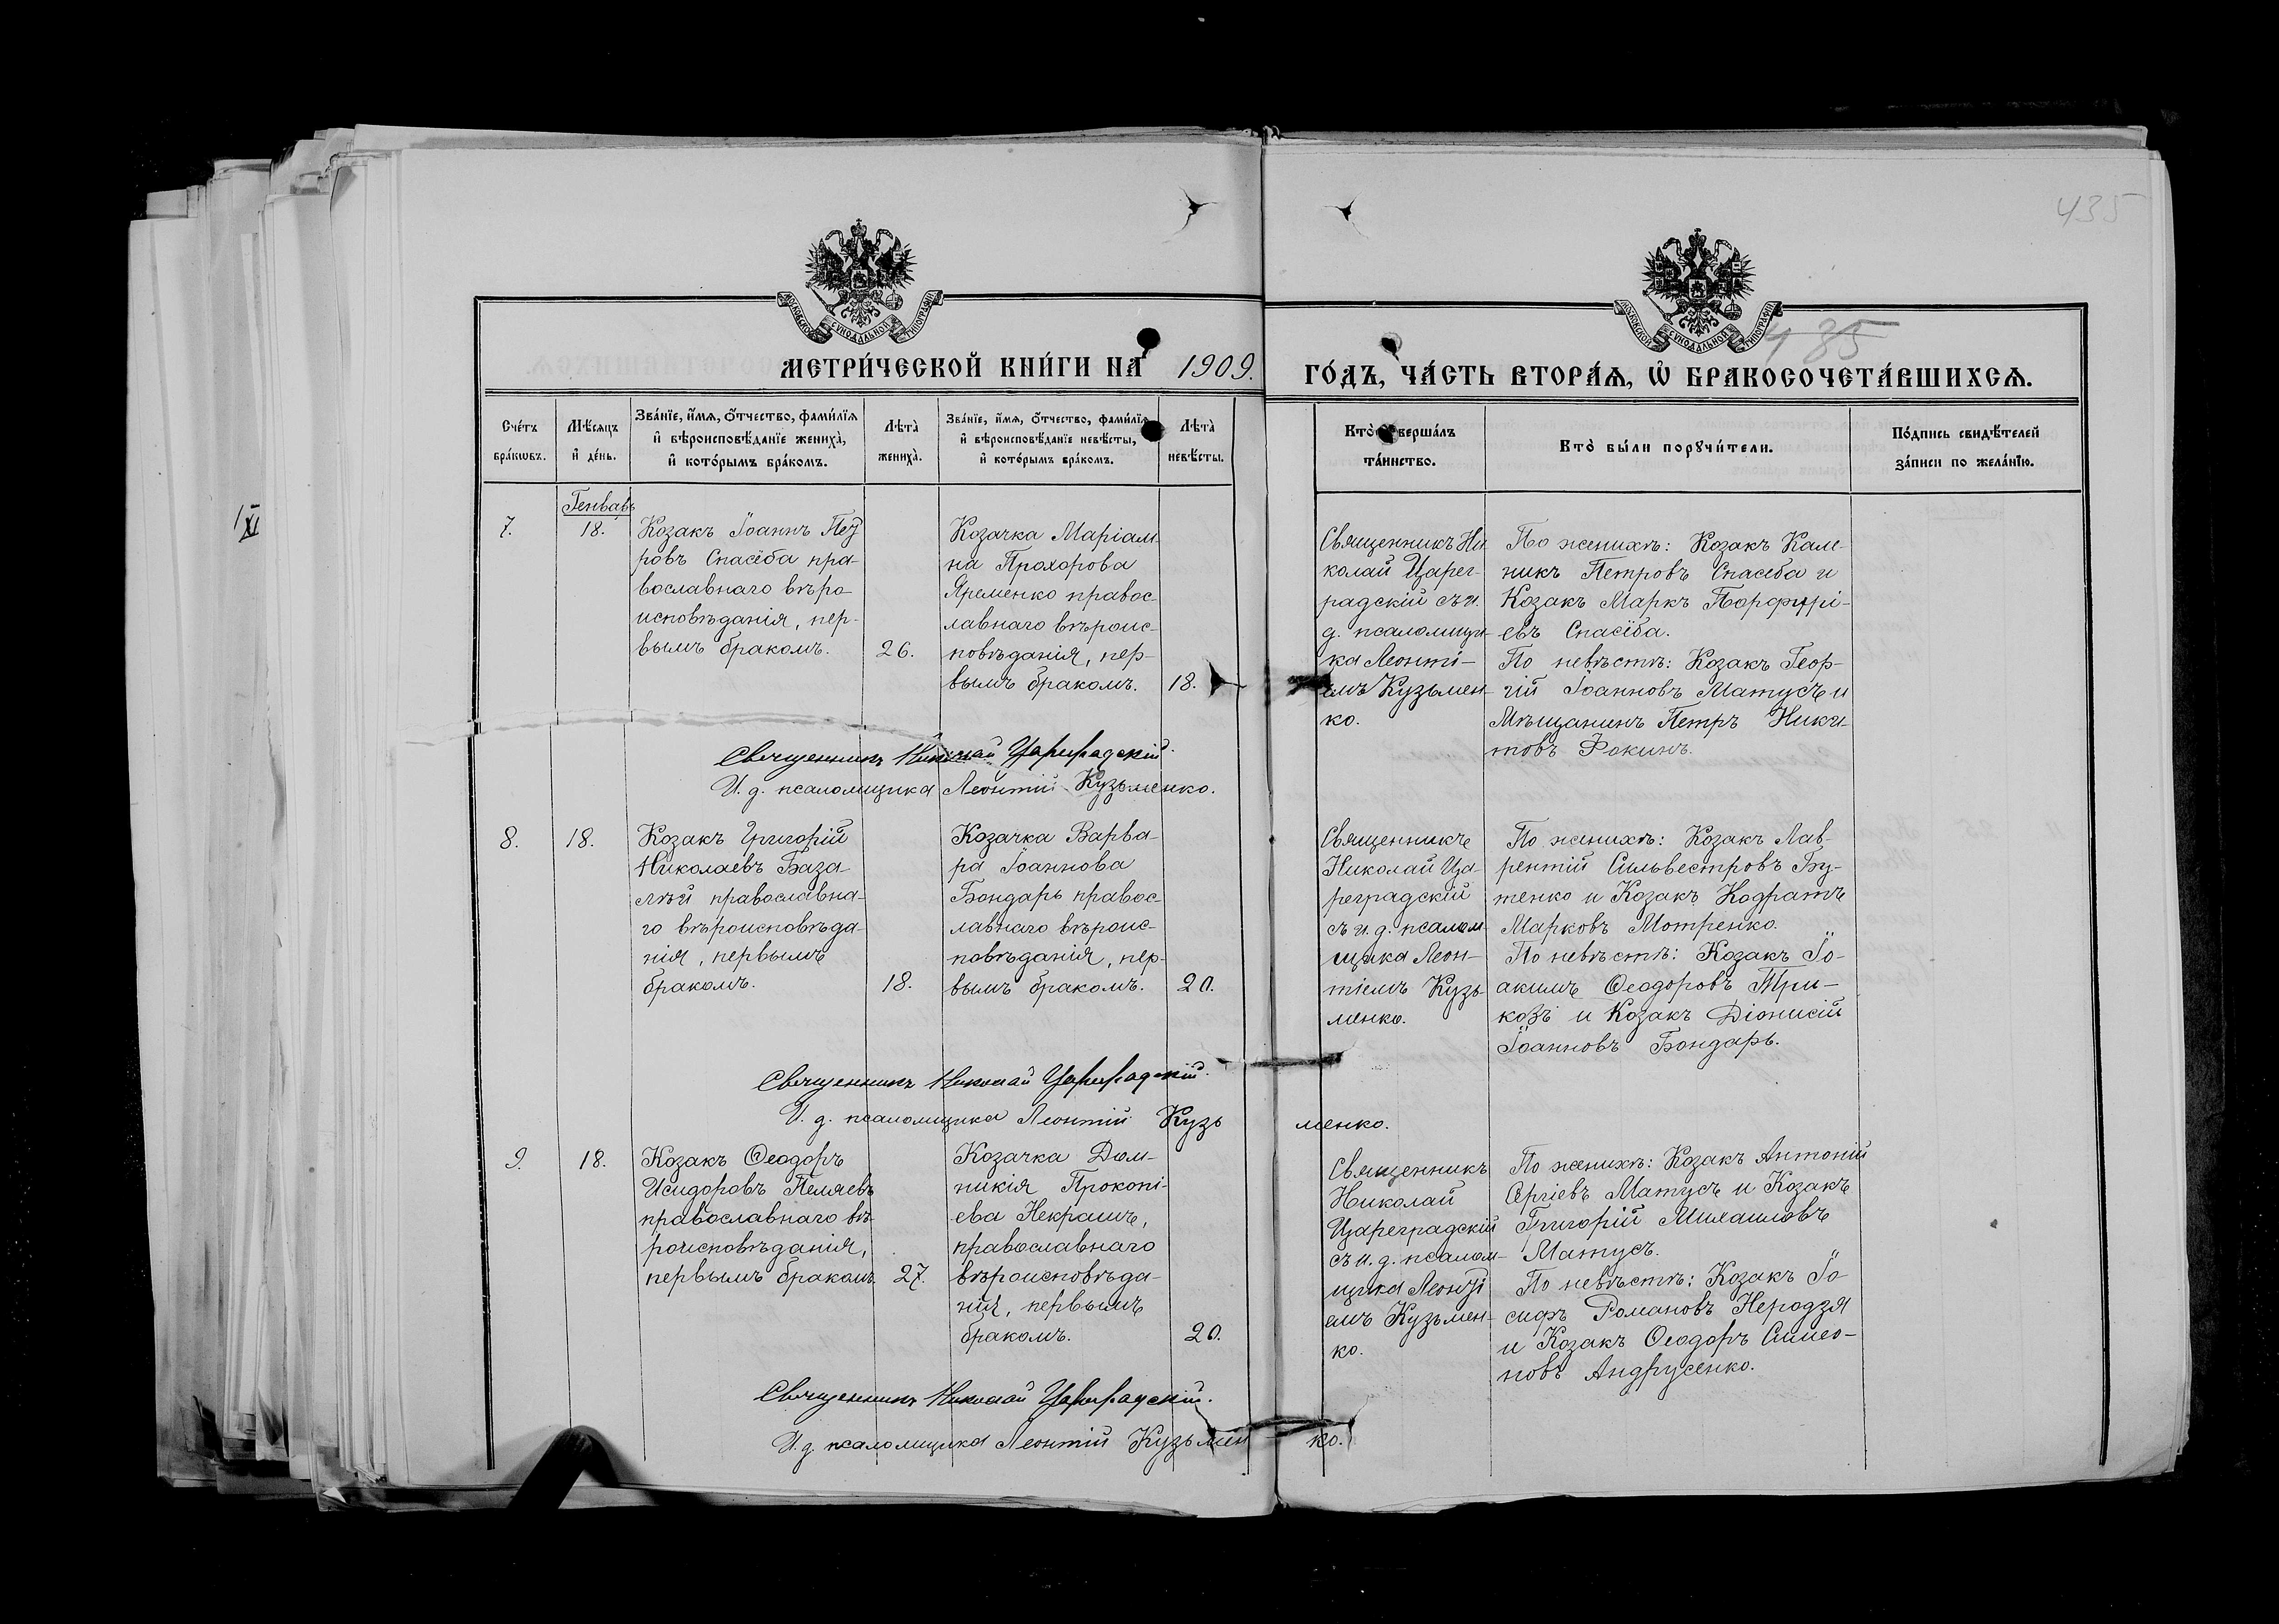 435
МОСКОВСКОЙ СѴНОДАЛЬНОЙ ТИПОГРАФІИ
МОСКОВСКОЙ СѴНОДАЛЬНОЙ ТИПОГРАФІИ
435
МЕТРИ́ЧЕСКОЙ КНИ́ГИ НА 1909.
ГО́ДЪ, ЧА́СТЬ ВТОРА́Ѧ, Ѽ БРАКОСОЧЕТА́ВШИХСѦ.
Сче́тъ бра́кѡвъ.
Мѣ́сяцъ и҆ де́нь.
Зва́нїе, и҆́мѧ, ѻ҆́тчество, фами́лїѧ
и҆ вѣроисповѣ́данїе жениха̀,
и҆ кото́рымъ бра́комъ.
Лѣ́та жениха̀.
Зва́нїе, и҆́мѧ, ѻ҆́тчество, фами́лїѧ
и҆ вѣроисповѣ́данїе невѣ́сты,
и҆ кото́рымъ бра́комъ.
Лѣ́та невѣ́сты.
Кто̀ соверша́лъ
та́инство.
Кто̀ бы́ли порꙋчи́тели.
По́дпись свидѣ́телей
за́писи по жела́нїю.
Генварь
7.
18.
Козакъ Іоаннъ Пет
ровъ Спасиба пра-
вославнаго вѣро
исповѣданія, пер-
вымъ бракомъ.
26.
Козачка Маріам-
на Прохорова
Яременко правос-
лавнаго вѣроис-
повѣданія, пер-
вымъ бракомъ.
18.
Священникъ Ни
колай Царег-
радскій съ и.
д. псаломщи-
ка Леонті-
емъ Кузьмен-
ко.
По женихѣ: Козакъ Кали-
никъ Петровъ Спасиба и
Козакъ Маркъ Порфирі-
евъ Спасиба.
По невѣстѣ: Козакъ Геор-
гій Іоанновъ Матусъ и
Мѣщанинъ Петръ Ники-
товъ Фокинъ.
Священникъ Николай Цареградскій
И. д. псаломщика Леонтій Кузьменко.
8.
18.
Козакъ Григорій
Николаевъ База-
лѣй православна-
го вѣроисповѣда-
нія, первымъ
бракомъ.
18.
Козачка Варва-
ра Іоаннова
Бондарь правос-
лавнаго вѣроис-
повѣданія, пер-
вымъ бракомъ.
20.
Священникъ
Николай Ца-
реградскій
съ и. д. псалом-
щика Леон-
тіемъ Кузь-
менко.
По женихѣ: Козакъ Лав-
рентій Сильвестровъ Бу-
тенко и Козакъ Кодратъ
Марковъ Мотренко.
По невѣстѣ: Козакъ Іо-
акимъ Ѳеодоровъ Три-
козъ и Козакъ Діонисій
Іоанновъ Бондарь.
Священникъ Николай Цареградскій.
И. д. псаломщика Леонтій Кузьменко.
9.
18.
Козакъ Ѳеодоръ
Исидоровъ Пеляевъ
православнаго вѣ-
роисповѣданія,
первымъ бракомъ.
27.
Козачка Дом-
никія Прокопі-
ева Некрашъ,
православнаго
вѣроисповѣда-
нія, первымъ
бракомъ.
20.
Священникъ
Николай
Цареградскій
съ и. д. псалом-
щика Леонті
емъ Кузьмен-
ко.
По женихѣ: Козакъ Антоній
Сергіевъ Матусъ и Козакъ
Григорій Михаиловъ
Матусъ.
По невѣстѣ: Козакъ Іо-
сифъ Романовъ Неродзя
и Козакъ Ѳеодоръ Симео-
новъ Андрусенко.
Священникъ Николай Цареградскій.
И. д. псаломщика Леонтій Кузьменко.